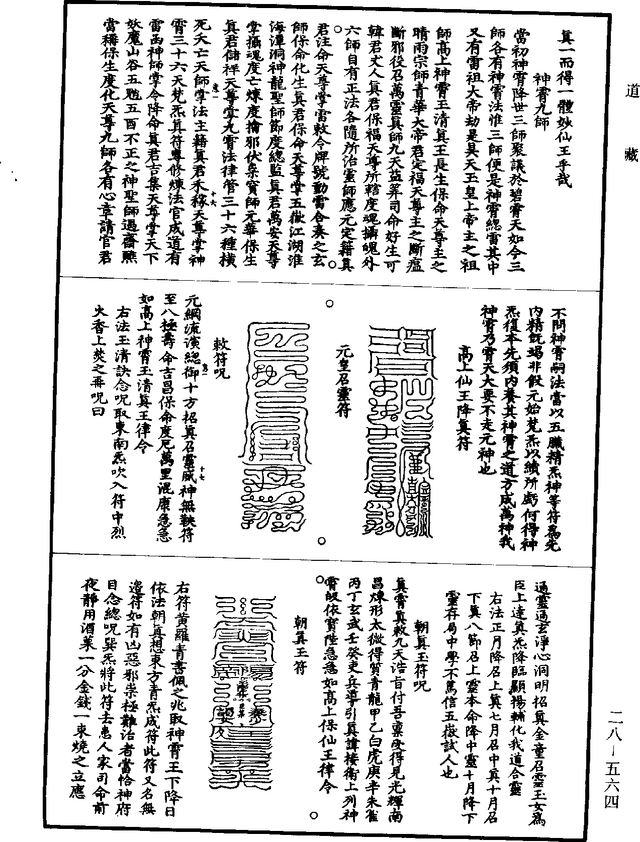 道藏
真一而得一體妙仙王乎哉
神霄九師
當初神霄降世三師聚議於碧霄天如今三
師各有神霄法惟三師便是神霄總雷其中
又有雷祖大帝劫是昊天玉皇上帝主之祖
師高上神霄玉清真王長生保命天尊主之
晴雨宗師青華大帝君定福天尊主之斷瘟
斷邪役召萬靈真師九天益筭司命好生可
韓君丈人真君保福天尊所轄度魂攝魄外
六師自有正法各隨所治靈師應元定籍真
君注命天尊掌雷敕令牌號動雷合奏之玄
師保命化生真君保命天尊掌五嶽江湖淮
海潭洞神龍聖師節度總監真君萬安天尊
掌攝魂度亡煉度擒邪伏祟寶師元華保生
真君儲祥天尊掌九霄法律管三十六種橫
死夭亡天師掌法主籍真君禾稼天尊掌神
霄三十六天梵炁真符專修煉法官成道有
雷函神師掌令降命真君吉集天尊掌天下
妖魔山谷五魈五酉不正之神聖師過齋醮
當稱保生度化天尊九師各有心章請官君
不問神霄嗣法當以五臟精炁神等符為先
內精既竭非假元始梵炁以續所虧何得神
炁復本先須內養其神霄之道方成萬神我
神霄乃霄天大要不走元神也
高上仙王降真符
元皇召靈符
敕符呪
元綱流演總御十方招真召靈威神無鞅符
至八極壽命吉昌保命度厄萬里混康急急
如高上神霄玉清真王律令
右法玉清訣念呪取東南炁吹入符中烈
火香上焚之再呪曰
通靈過玄淨心洞明招真金童召靈玉女為
臣上達真炁降臨顯揚輔化我道合靈
右法正月降召上真七月召中真十月召
下真八節召上靈本命降中靈十月降下
靈在局中學不篤信五嶽試人也
朝真王符呪
真霄真敕九天浩首付吾稟受得見光輝南
昌煉形太微得質青龍甲乙白虎庚辛朱雀
丙丁玄武壬癸吏兵導引真諱接衛上列神
霄皈依寶陛急急如高上保仙王律令
朝真王符
右符黃羅青書佩之兆取神霄王下降日
依法朝真想東方青炁成符此符又名無
邊符如有凶惡邪祟極難治者當恰神府
目念總呪巽炁將此符去患人家司命前
夜靜用酒菓一分金錢一束燒之立應
二八—五六四